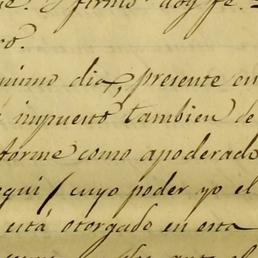 y firmó doy fe.
co.
nismo dia, presente en
impuesto tambien de
forme como apoderado
egui (cuyo poder yo el
está otorgado en esta